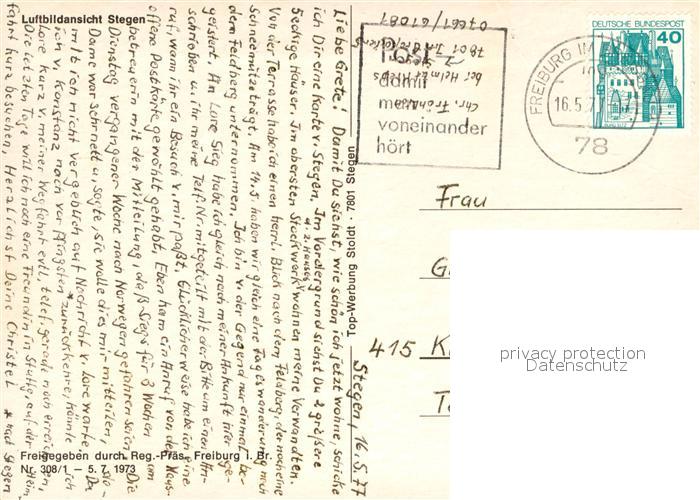 Luftbildansicht Stegen
Stegen, 16.5.77
Liebe Grete! Damit Du siehst, wie schön ich jetzt wohne, schicke
ich Dir eine Karte v. Stegen. Im Vordergrund siehst Du 2 größere
5eckige Häuser. Im obersten Stockwerk wohnen meine Verwandten.
Von der Terrasse habe ich einen herrl. Blick nach dem Feldberg, der noch eine
Schneemütze trägt. Am 14.5. haben wir gleich eine Tageswanderung nach
dem Feldberg unternommen. Ich bin v. der Gegend nur einmal be-
geistert. An Lore Sieg habe ich gleich nach meiner Ankunft hier ge-
schrieben u. ihr meine Telf. Nr. mitgeteilt mit der Bitte um einen An-
ruf, wann ihr ein Besuch v. mir paßt. Glücklicherweise habe ich eine
offene Postkarte gewählt gehabt. Eben kam ein Anruf von der Haus-
betreuerin mit der Mitteilung, daß Siegs für 3 Wochen am
Dienstag vergangener Woche nach Norwegen gefahren seien. Die
Dame war sehr nett u. sagte, sie wolle dies mir mitteilen, da-
mit ich nicht vergeblich auf Nachricht v. Lore warte. Da
ich v. Konstanz noch vor Pfingsten * zurückkehre, könnte ich
Lore kurz v. meiner Wegfahrt evtl. telef. gerade noch erreichen.
Die letzten Tage will ich noch eine Freundin in Stuttgart auf der Heim-
fahrt kurz besuchen. Herzlichst Deine Christel * nach Stegen
Top-Werbung Stroht · 7801 Stegen
Chr.
bei Helmut
7801
07661/61081
Post
damit
man
voneinander
hört
FREIBURG IM
16.5.77
78
DEUTSCHE BUNDESPOST
40
Frau
G
415 K
T
privacy protection
Datenschutz
Freigegeben durch Reg.-Präs. Freiburg i. Br.
Nr. 308/1 — 5. 7. 1973